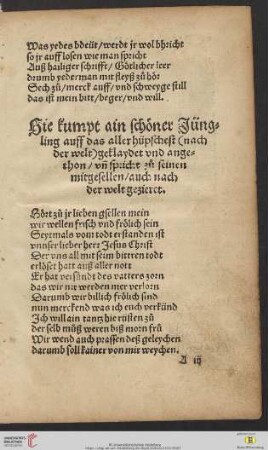 Was yedes bdeüt/werdt jr wol bhricht
so jr auff losen wie man spricht
Auß hailiger schrifft/Götlicher leer
drumb yederman mit fleyß zů hör
Sech zů/merck auff/vnd schweyge still
das ist mein bitt/beger/vnd will.
Hie kumpt ain schöner Jüng-
ling auff das aller hüpschest (nach
der welt) geklaydet vnd ange-
thon/vñ spricht zů seinen
mitgesellen/auch nach
der welt gezieret.
Hört zů jr lieben gsellen mein
wir wellen frisch vnd frölich sein
Seytmals vom todt erstanden ist
vnnser lieber herr Jesus Christ
Der vns all mit seim bittren todt
erlöset hatt auß aller nott
Er hat versündt des vatters zorn
das wir nit werden mer verlorn
Darumb wir billich frölich sind
nun merckend was ich euch verkünd
Ich will ain tantz hie rüsten zů
der selb můß weren biß morn frů
Wir wend auch prassen deß geleychen
darumb soll kainer von mir weychen.
A iij